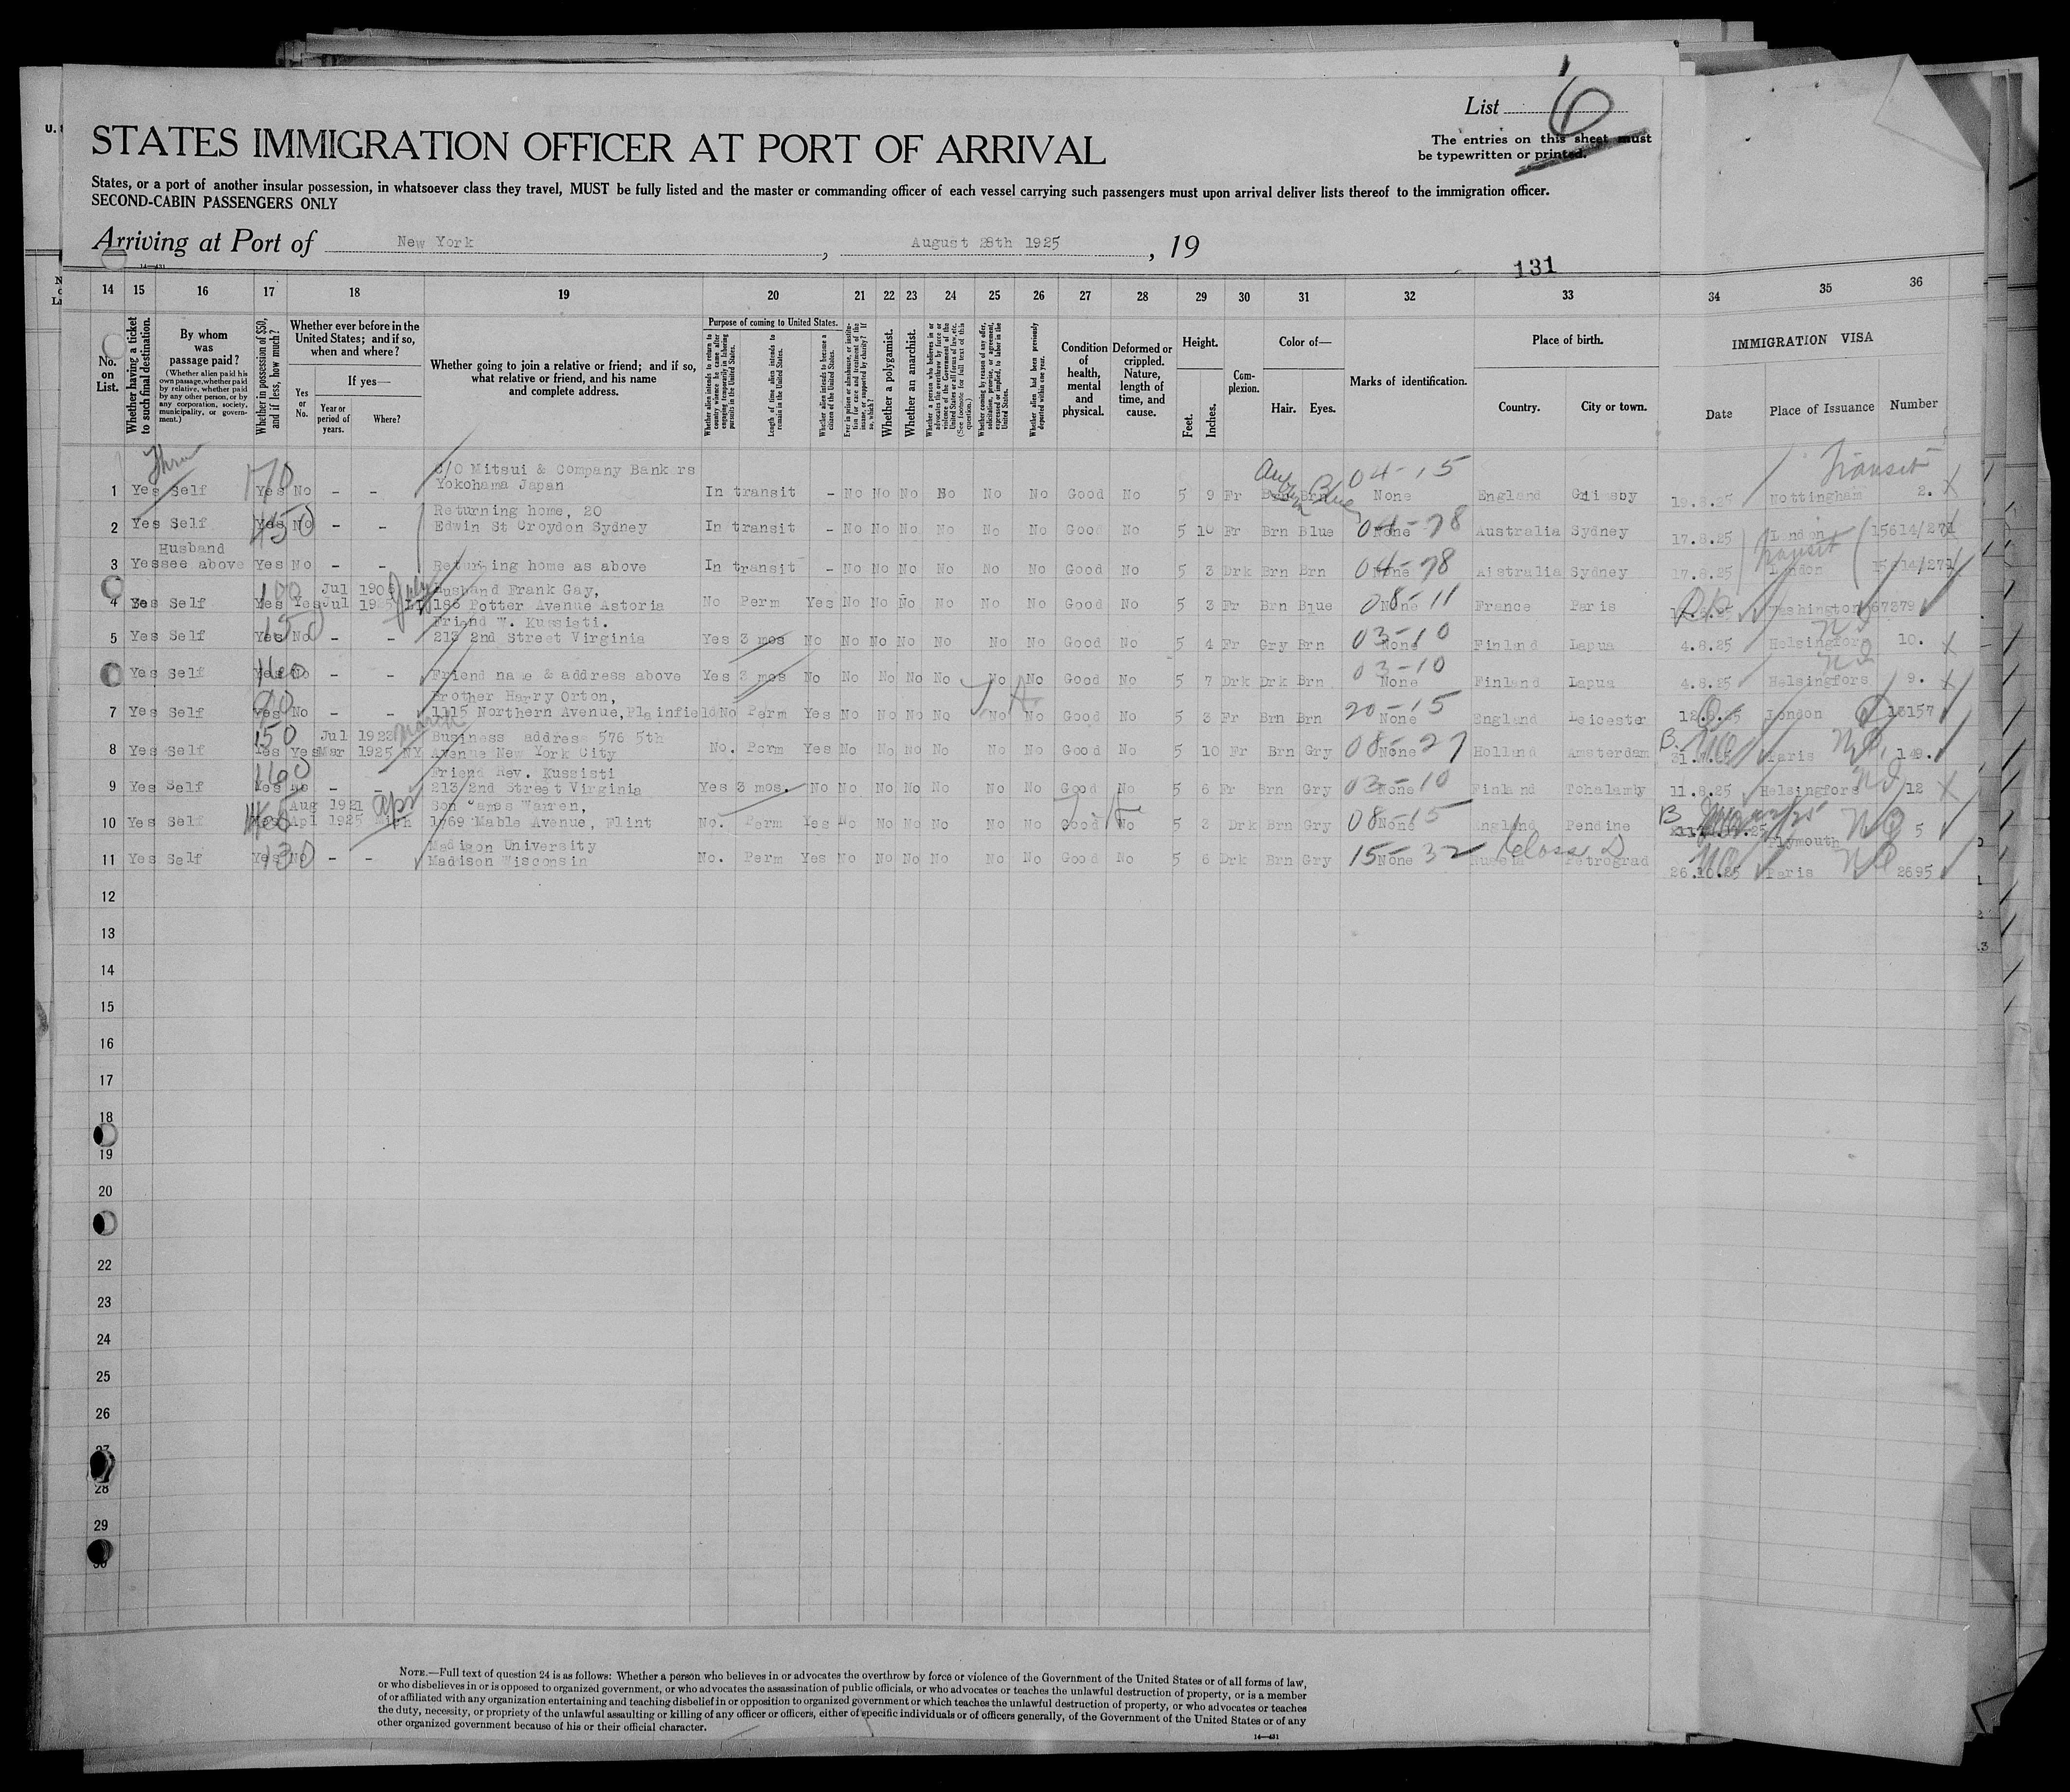 List 6
The entries on this sheet must
be typewritten or printed.
STATES IMMIGRATION OFFICER AT PORT OF ARRIVAL
States, or a port of another insular possession, in whatsoever class they travel, MUST be fully listed and the master or commanding officer of each vessel carrying such passengers must upon arrival deliver lists thereof to the immigration officer.
SECOND-CABIN PASSENGERS ONLY
Arriving at Port of New York , August 28th 1925 , 19
131
14 15 16 17 18 19 20 21 22 23 24 25 26 27 28 29 30 31 32 33 34 35 36
No. on List.
Whether having a ticket to such final destination.
By whom was passage paid?
(Whether alien paid his own passage, whether paid by relative, whether paid by any other person, or by any corporation, society, municipality, or government.)
Whether in possession of $50, and if less, how much?
Whether ever before in the United States; and if so, when and where?
Yes or No.
If yes—
Year or period of years.
Where?
Whether going to join a relative or friend; and if so, what relative or friend, and his name and complete address.
Purpose of coming to United States.
Whether alien intends to return to country whence he came after engaging temporarily in laboring pursuits in the United States.
Length of time alien intends to remain in the United States.
Whether alien intends to become a citizen of the United States.
Ever in prison or almshouse, or institution for care and treatment of the insane, or supported by charity? If so, which?
Whether a polygamist.
Whether an anarchist.
Whether a person who believes in or advocates the overthrow by force or violence of the Government of the United States or all forms of law, etc. (See footnote for full text of this question.)
Whether coming by reason of any offer, solicitation, promise, or agreement, expressed or implied, to labor in the United States.
Whether alien had been previously deported within one year.
Condition of health, mental and physical.
Deformed or crippled. Nature, length of time, and cause.
Height.
Feet. Inches.
Complexion.
Color of—
Hair. Eyes.
Marks of identification.
Place of birth.
Country. City or town.
IMMIGRATION VISA
Date Place of Issuance Number
Thru 170 C/O Mitsui & Company Bankers Auburn Blue 04-15 Transit
1 Yes Self Yes No - - Yokohama Japan In transit - No No No No No No Good No 5 9 Fr Brn Brn None England Grimsby 19.8.25 Nottingham 2.
450 Returning home, 20
2 Yes Self Yes No - - Edwin St Croydon Sydney In transit - No No No No No No Good No 5 10 Fr Brn Blue 04-78 None Australia Sydney 17.8.25 London 15614/271
Husband Transit
3 Yes see above Yes No - - Returning home as above In transit - No No No No No No Good No 5 3 Drk Brn Brn 04-78 None Australia Sydney 17.8.25 London 15614/271
100 Jul 1906 July Husband Frank Gay,
4 Yes Self Yes Yes Jul 1925 186 Potter Avenue Astoria No Perm Yes No No No No No No Good No 5 3 Fr Brn Blue 08-11 None France Paris Washington 67879
150 Friend W. Kussisti.
5 Yes Self Yes No - - 213 2nd Street Virginia Yes 3 mos No No No No No No No Good No 5 4 Fr Gry Brn 03-10 None Finland Lapua 4.8.25 Helsingfors 10.
6 Yes Self Yes No - - Friend name & address above Yes 3 mos No No No No No No No Good No 5 7 Drk Drk Brn 03-10 None Finland Lapua 4.8.25 Helsingfors 9.
Brother Harry Orton,
7 Yes Self Yes No - - 1115 Northern Avenue, Plainfield No Perm Yes No No No No No No Good No 5 3 Fr Brn Brn 20-15 None England Leicester London 13157
150 Jul 1923 March Business address 576 5th
8 Yes Self Yes Yes Mar 1925 NY Avenue New York City No. Perm Yes No No No No No No Good No 5 10 Fr Brn Gry 08-27 None Holland Amsterdam Paris 149.
160 Friend Rev. Kussisti
9 Yes Self Yes No - - 213 2nd Street Virginia Yes 3 mos. No No No No No No No Good No 5 6 Fr Brn Gry 03-10 None Finland Tohalamby 11.8.25 Helsingfors 12
Aug 1921 Apr Son James Warren,
10 Yes Self Yes Apl 1925 Mich 1769 Mable Avenue, Flint No. Perm Yes No No No No No No Good No 5 3 Drk Brn Gry 08-15 None England Pendine Plymouth 5
130 Madison University Class D
11 Yes Self Yes No - - Madison Wisconsin No. Perm Yes No No No No No No Good No 5 6 Drk Brn Gry 15-32 None Russia Petrograd 26.10.25 Paris 2695
12
13
14
15
16
17
18
19
20
22
23
24
25
26
27
28
29
30
NOTE.—Full text of question 24 is as follows: Whether a person who believes in or advocates the overthrow by force or violence of the Government of the United States or of all forms of law,
or who disbelieves in or is opposed to organized government, or who advocates the assassination of public officials, or who advocates or teaches the unlawful destruction of property, or is a member
of or affiliated with any organization entertaining and teaching disbelief in or opposition to organized government or which teaches the unlawful destruction of property, or who advocates or teaches
the duty, necessity, or propriety of the unlawful assaulting or killing of any officer or officers, either of specific individuals or of officers generally, of the Government of the United States or of any
other organized government because of his or their official character.
14—431